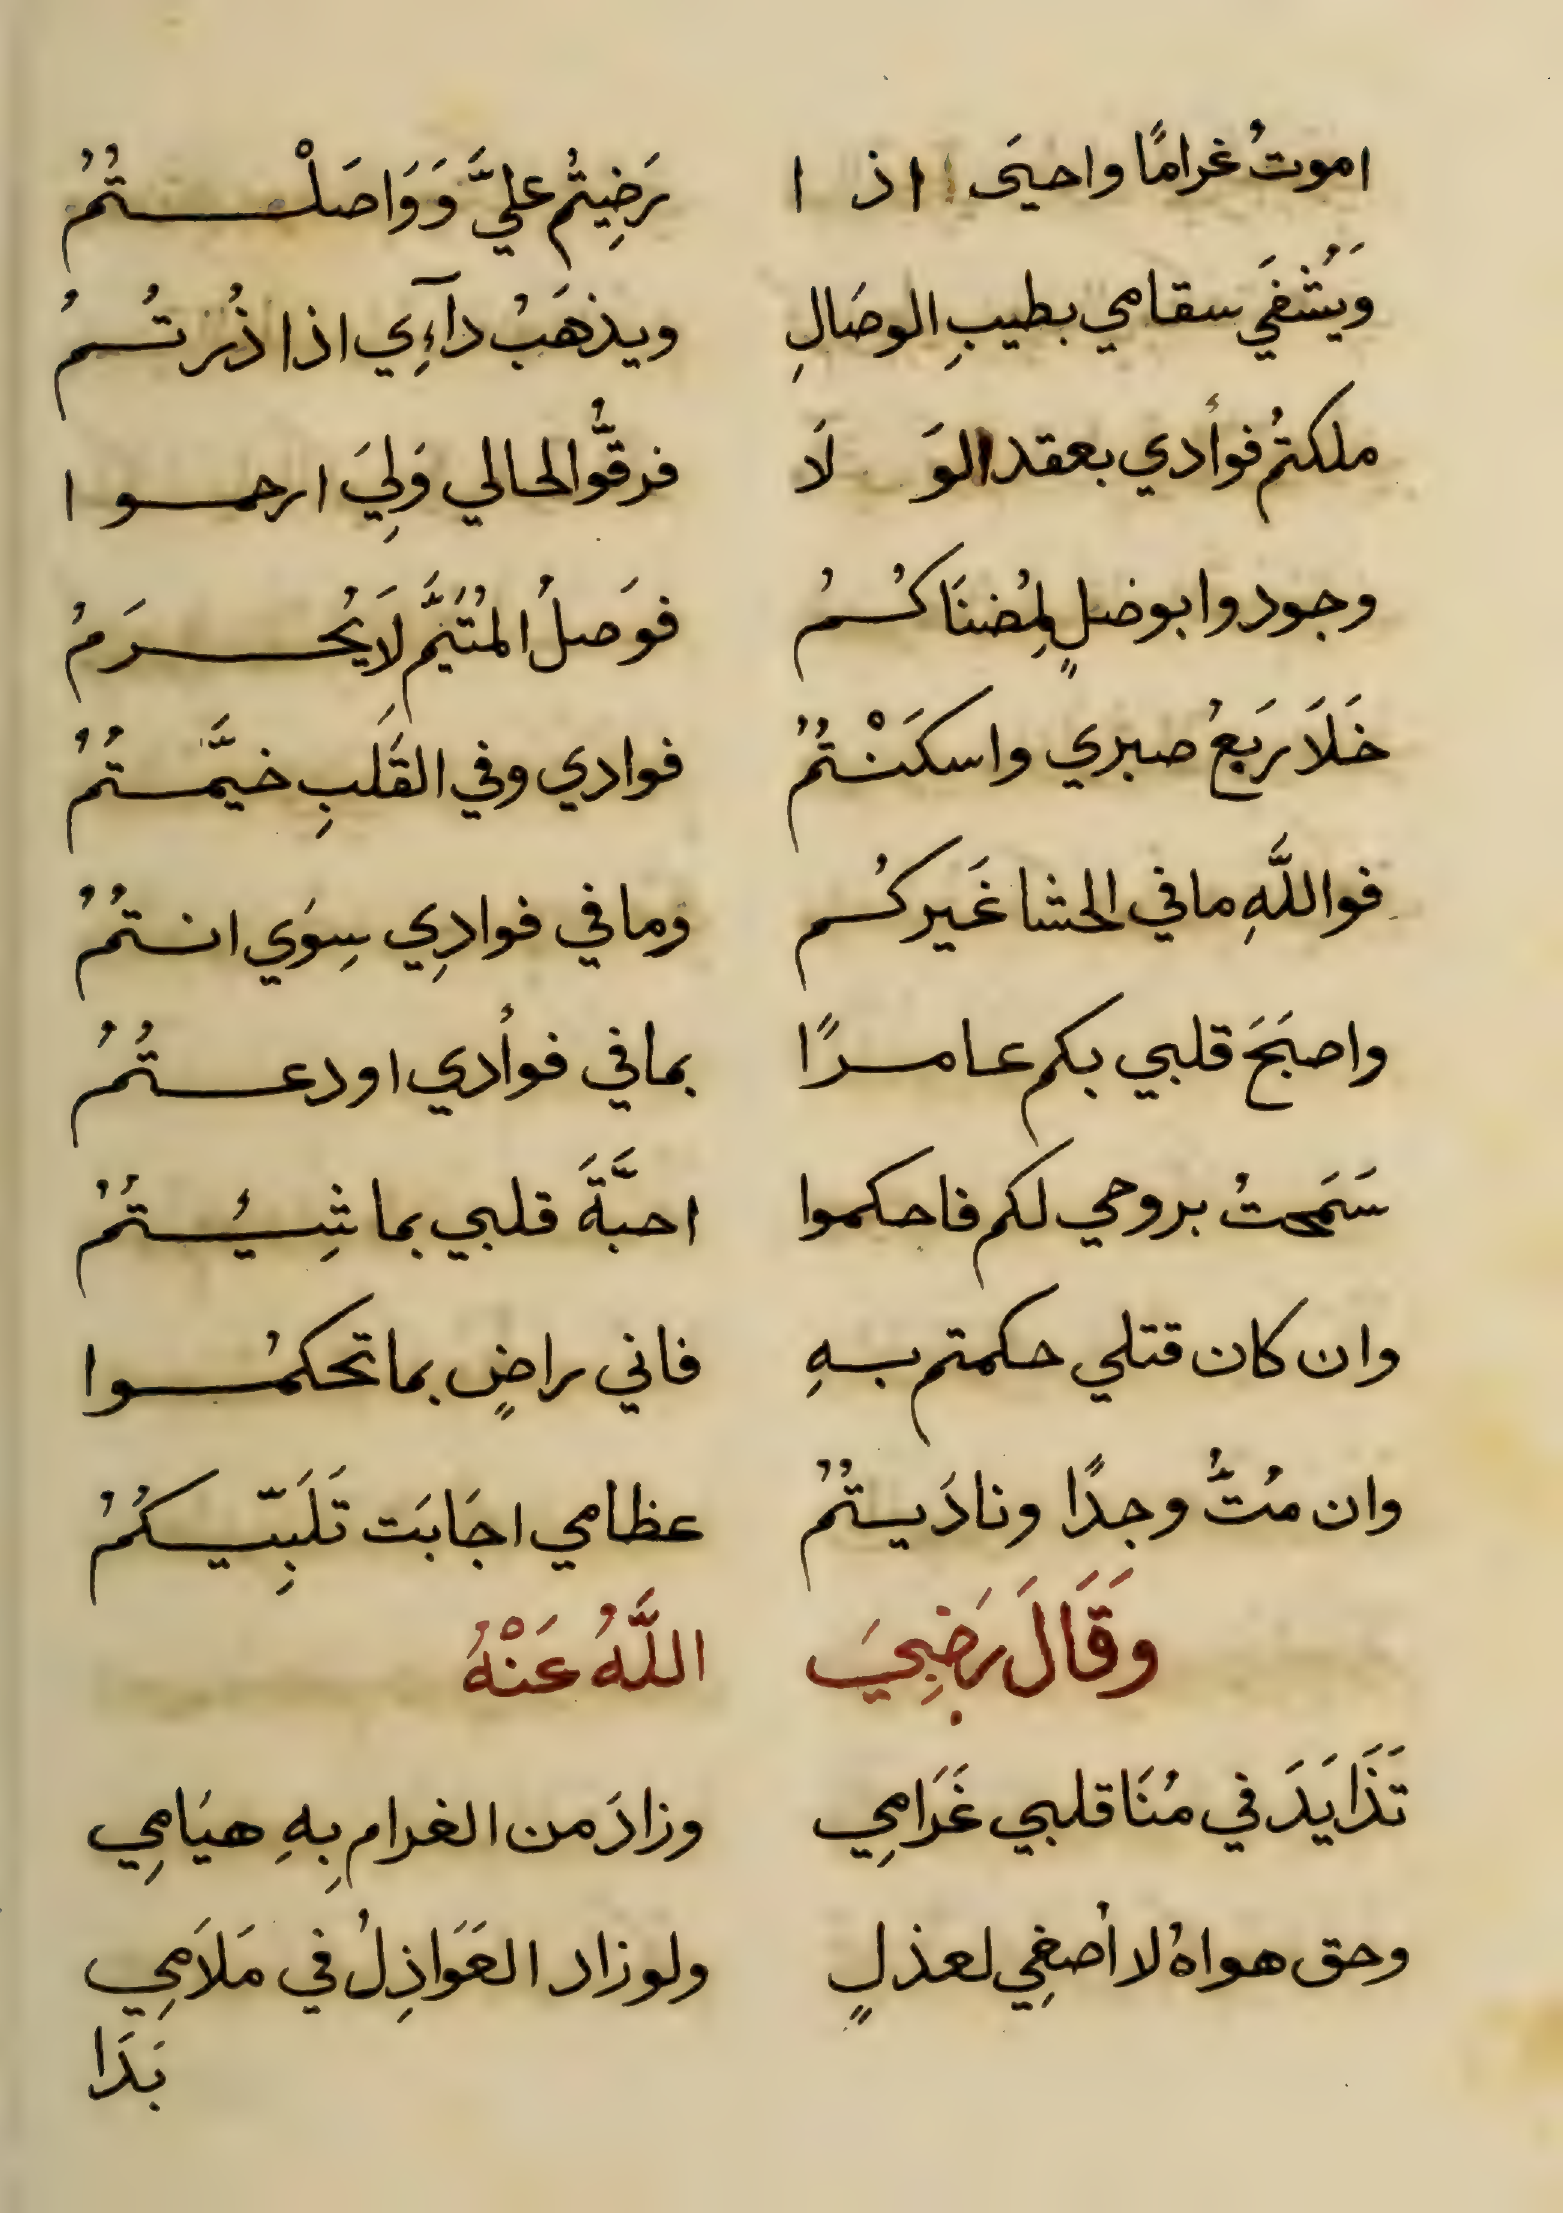 اموتُ غرامًا واحيَى اذا رَضِيتُم عليَّ وَوَاصَلْتُمُ
وَيُشفَي سقامي بطيبِ الوصَالِ ويذهَبُ دآءِي اذا ذُرتُمُ
ملكتمُ فوأدي بعقد الوَلَا فرقُّوا لحالي وَلِيَ ارحموا
وجودوا بوصلٍ لِمُضنَاكُمُ فوَصلُ المُتَيَّمِ لَا يُحرَمُ
خَلَا رَبعُ صبري واسكَنْتُمُ فوادي وفي القَلبِ خيَّمتُمُ
فواللَّهِ ما في الحشا غَيركُم وما في فوادِي سِوَي انتمُ
واصبَحَ قلبي بكم عامرًا بما في فوأدي اودعتُمُ
سَمَحتُ بروحي لكم فاحكموا احبَّةَ قلبي بما شِئتُمُ
وان كان قتلي حكمتم بهِ فاني راضٍ بما تحكمُوا
وان مُتُّ وجدًا ونادَيتُمُ عظامي اجَابَت تَلَبِّيكُمُ
وَقَالَ رَضِيَ اللَّهُ عَنْهُ
تَذَايَدَ في مُنَا قلبي غَرَامِي وزادَ من الغرام بِهِ هيَامِي
وحق هواهُ لا أصغِي لعذلٍ ولو زاد العَوَاذِلُ في مَلَامِي
بَدَا